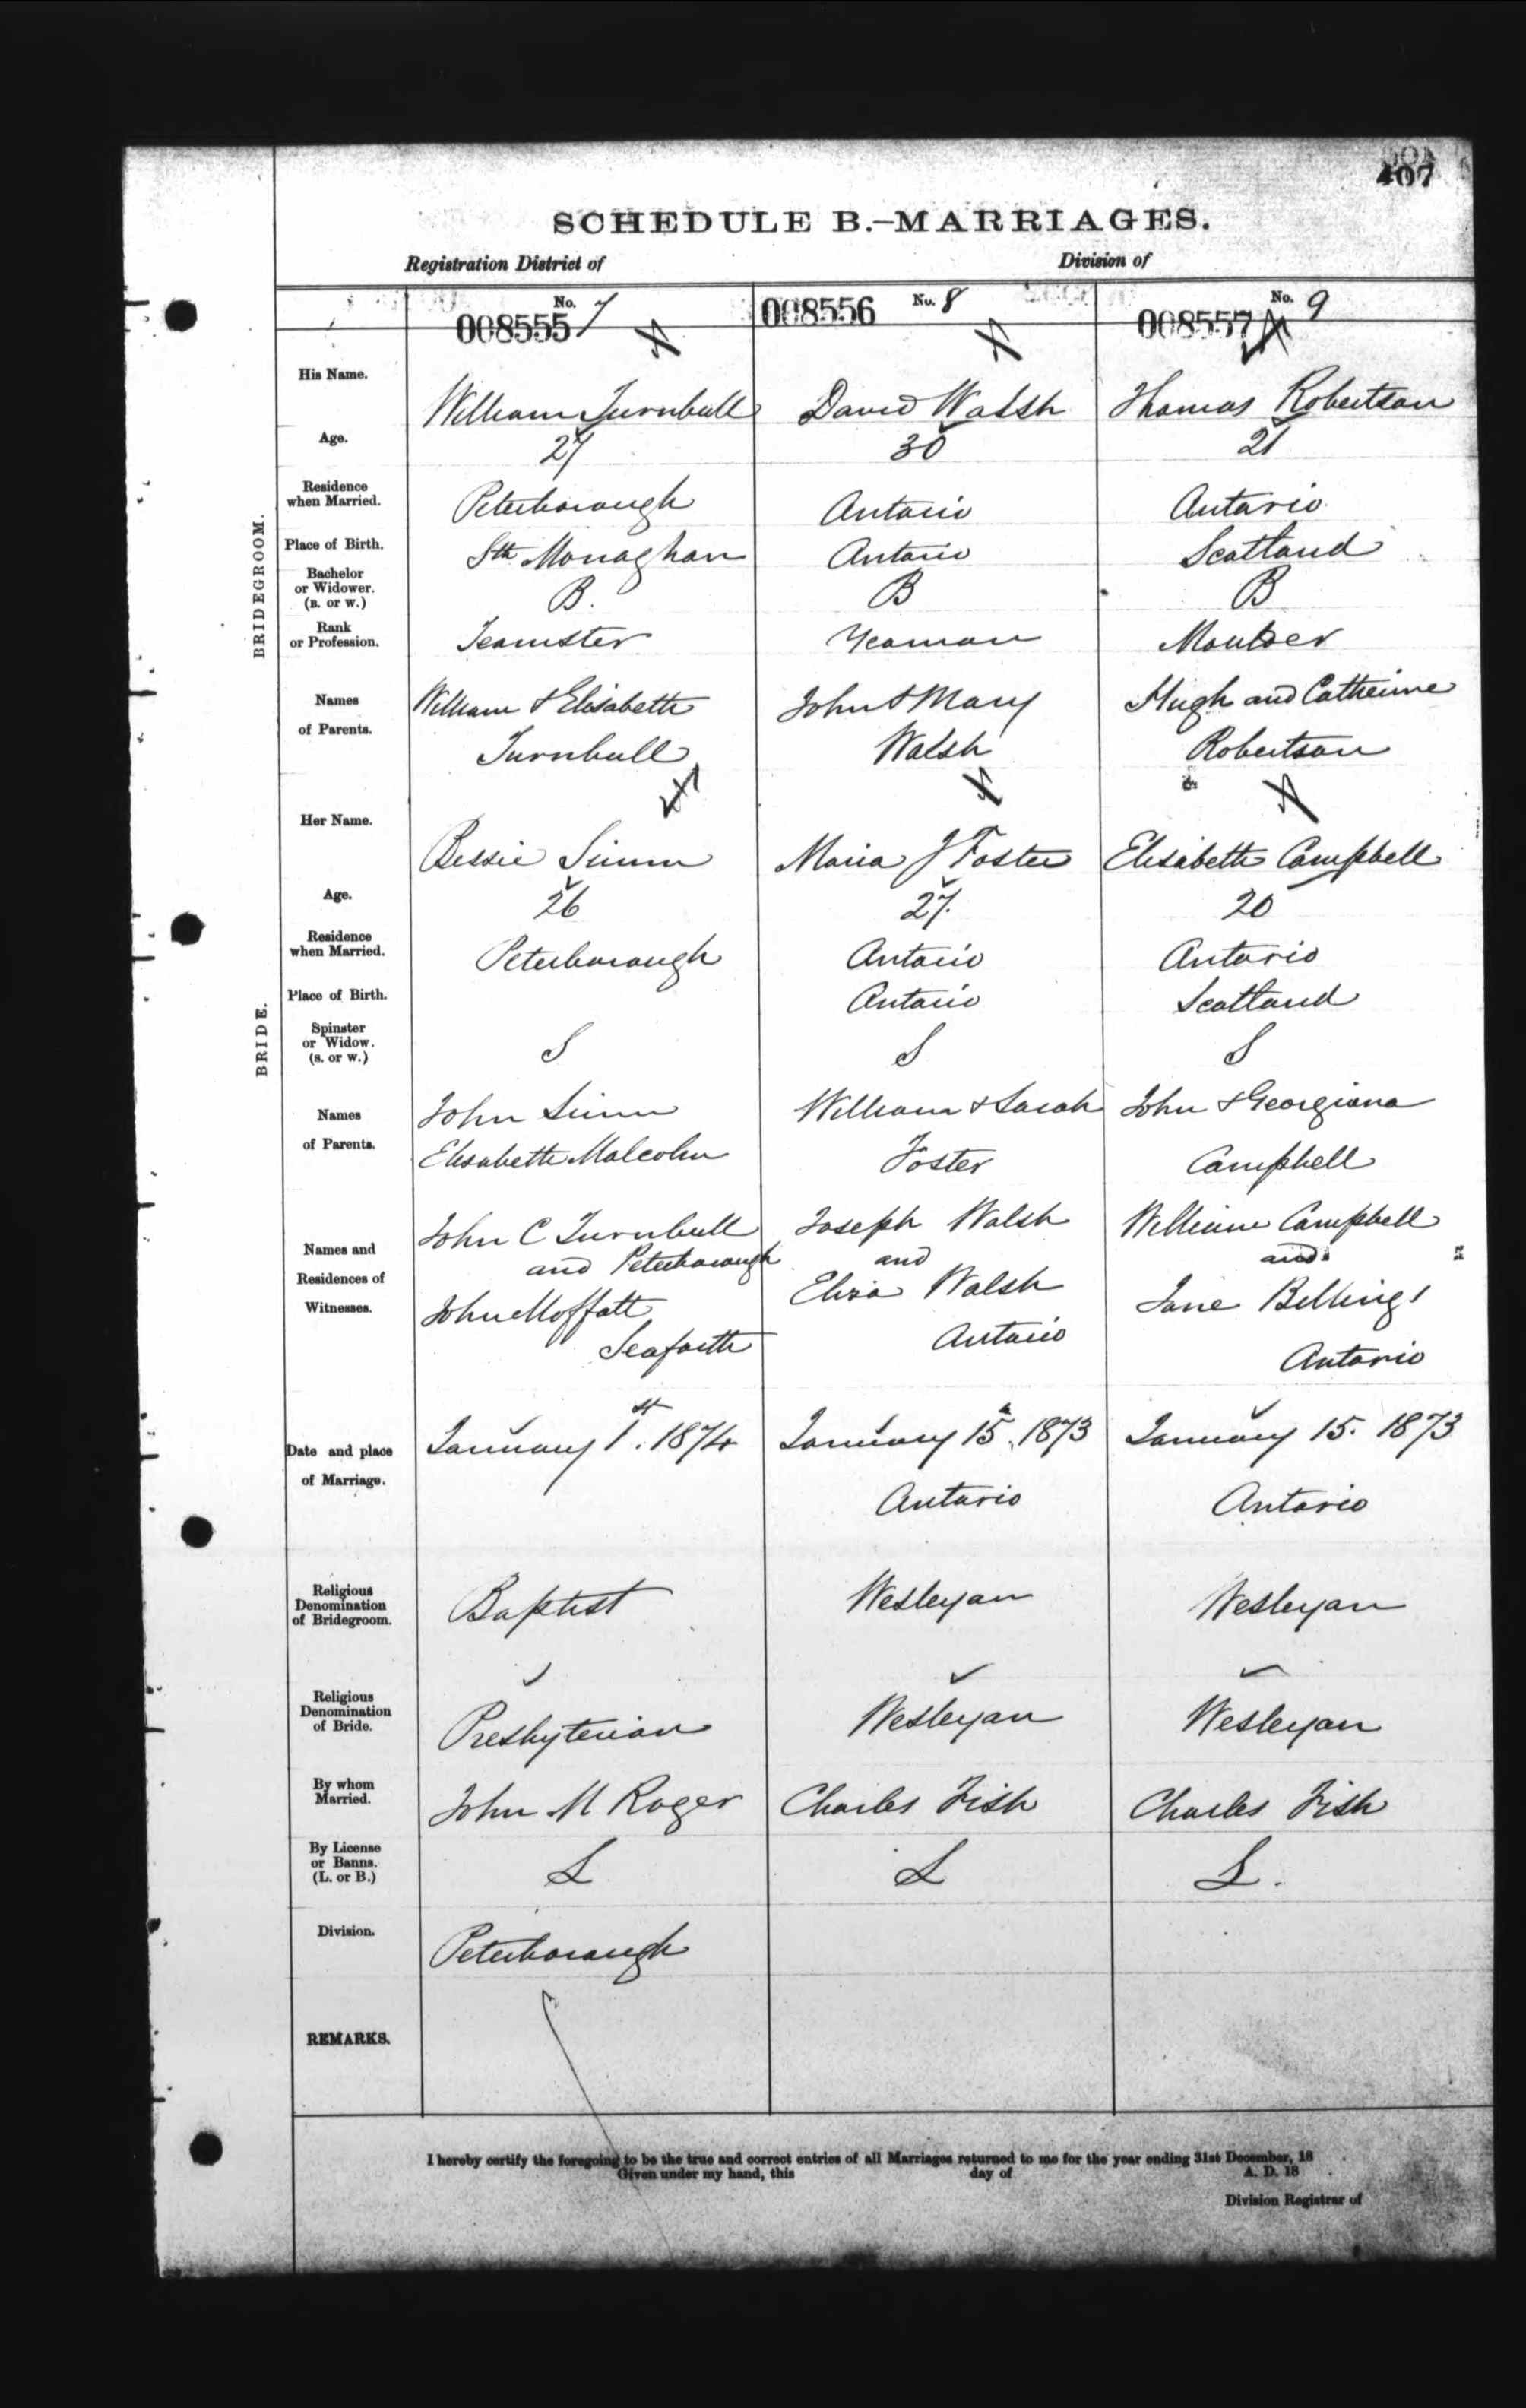 407
SCHEDULE B.–MARRIAGES.
Registration District of
Division of
No. 7
008555
008556
No. 8
No. 9
008557
BRIDEGROOM.
His Name.
William Turnbull
David Walsh
Thomas Robertson
Age.
27
30
21
Residence
when Married.
Peterborough
Ontario
Ontario
Place of Birth.
Sth Monaghan
Ontario
Scotland
Bachelor
or Widower.
(B. or W.)
B.
B
B
Rank
or Profession.
Teamster
Yeoman
Moulder
Names
of Parents.
William & Elisabeth
Turnbull
John & Mary
Walsh
Hugh and Catherine
Robertson
BRIDE.
Her Name.
Bessie Simm
Maria J Foster
Elisabeth Campbell
Age.
26
27.
20
Residence
when Married.
Peterborough
Ontario
Ontario
Place of Birth.
Ontario
Scotland
Spinster
or Widow.
(S. or W.)
S
S
S
Names
of Parents.
John Simm
Elisabeth Malcolm
William & Sarah
Foster
John & Georgiana
Campbell
Names and
Residences of
Witnesses.
John C Turnbull
and Peterborough
John Moffatt
Seaforth
Joseph Walsh
and
Eliza Walsh
Ontario
William Campbell
and
Jane Billings
Ontario
Date and place
of Marriage.
January 1st. 1874
January 15, 1873
Ontario
January 15. 1873
Ontario
Religious
Denomination
of Bridegroom.
Baptist
Wesleyan
Wesleyan
Religious
Denomination
of Bride.
Presbyterian
Wesleyan
Wesleyan
By whom
Married.
John M Roger
Charles Fish
Charles Fish
By License
or Banns.
(L. or B.)
L
L
L.
Division.
Peterborough
REMARKS.
I hereby certify the foregoing to be the true and correct entries of all Marriages returned to me for the year ending 31st December, 18
Given under my hand, this day of A. D. 18
Division Registrar of